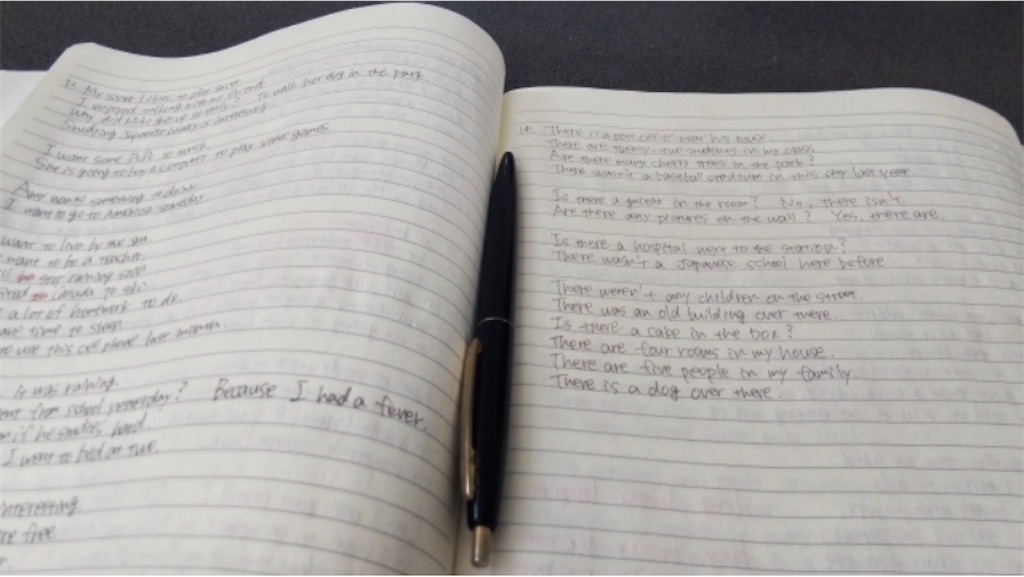 12 My sister likes to play tennis.
I enjoyed talking with my friend.
Why did Mike get up so early? To walk her dog in the park.
Studying Japanese history is interesting.
I want some
She is going to buy a computer to play some games.
Amy wants something to drink.
I want to go to America someday.
want to live by the sea.
I want to be a teacher.
be stop raining soon.
to Canada to ski.
a lot of homework to do.
have time to sleep.
to use this cell phone last month.
it was raining.
from school yesterday? Because I had a fever.
if he studies hard.
I went to bed at two.
interesting.
re free.
14 There is a post office near his house.
There are twenty-two students in my class.
Are there many cherry trees in the park?
There wasn't a baseball stadium in this city last year.
Is there a guitar in the room? No, there isn't.
Are there any pictures on the wall? Yes, there are.
Is there a hospital next to the station?
There wasn't a Japanese school here before.
There weren't any children on the street.
There was an old building over there.
Is there a cake in the box?
There are four rooms in my house.
There are five people in my family.
There is a dog over there.